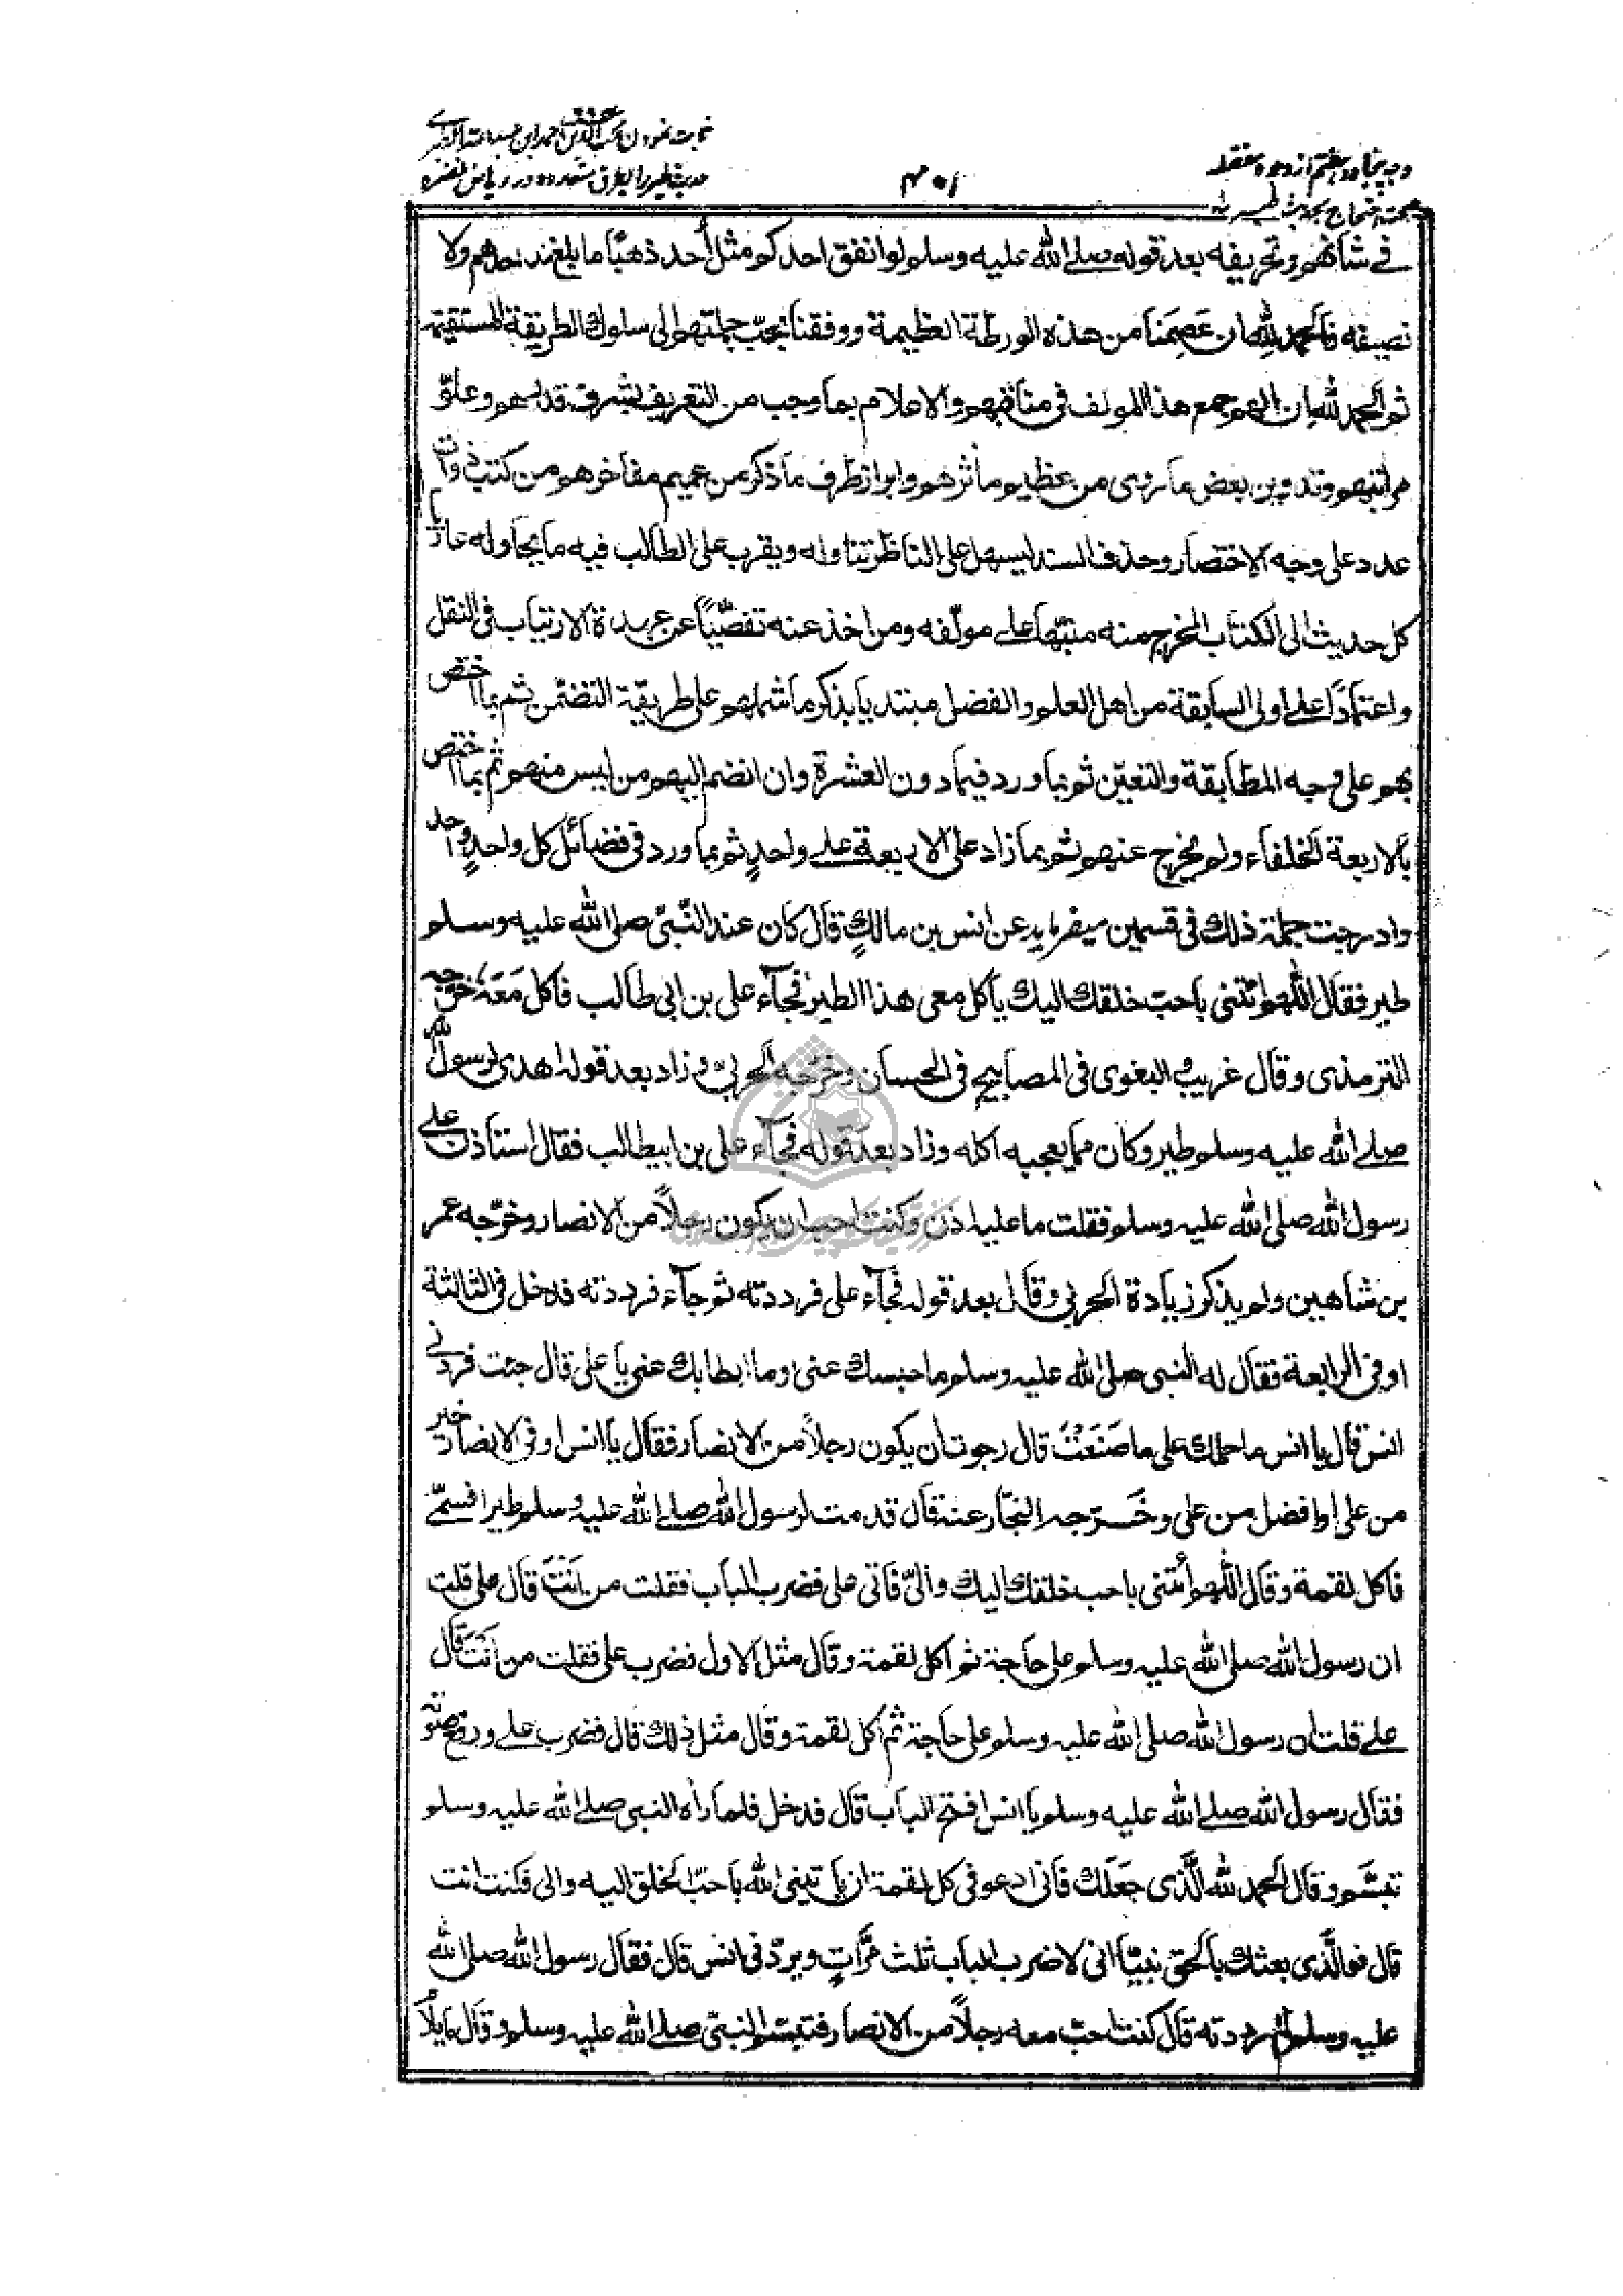 وجه پنجاه و هفتم از وجوه مفصله
صحت احتجاج بحدیث طیر
۴۰۱
احمد ابن عبد الله الطبری
حدیث طیر را بطرق متعدده در ریاض النضره
فے شانهم وتحریفه بعد قوله صلے الله علیه وسلم لو انفق احدکم مثل اُحد ذهبًا ما بلغ مد احدهم ولا
نصیفه فالحمد لله ان عصمنا من هذه الورطة العظیمة ووفقنا بحبّ جملتهم الی سلوك الطریقة المستقیمة
ثم الحمد لله ان الهم جمع هذا المولف فی مناقبهم والاعلام بما وجب من التعریف بشرف قدرهم وعلوّ
مراتبهم وتدوین بعض ما روی من عظیم مآثرهم وابراز طرف ما ذکر من عمیم مفاخرهم من کتب ذوات
عدد علی وجه الاختصار وحذف السند لیسهل علی الناظر تناوله ویقرب علی الطالب فیه ما یحاوله عازیا
کل حدیث الی الکتاب المخرج منه منبّها علے مولّفه ومن اخذ عنه تفصّیًا عن عهدة الارتیاب فی النقل
واعتمادًا علے اولی السابقة من اهل العلم والفضل مبتدیا بذکر ما شملهم علی طریقة التضمّن ثم بما اختص
بهم علی وجه المطابقة والتعیّن ثم بما ورد فیما دون العشرة وان انضم الیهم من لیس منهم ثم بما اختص
بالاربعة الخلفاء ولم یخرج عنهم ثم بما زاد علی الاربعة علے واحدٍ ثم بما ورد فی فضائل کل واحدٍ واحد
وادرجت جملة ذلك فی قسمین میفرماید عن انس بن مالكٍ قال کان عند النّبیّ صلی الله علیه وسلم
طیر فقال اللّهم ائتنی باحب خلقك الیك یاکل معی هذا الطیر فجاء علی بن ابی طالب فاکل مَعَهٗ خرّجه
الترمذی وقال غریب والبغوی فی المصابیح فی الحسان وخرّجه الحربیّ وزاد بعد قوله اهدی لرسول الله
صلے الله علیه وسلم طیر وکان مما یعجبه اکله وزاد بعد قوله فجآء علی بن ابیطالب فقال استاذن علے
رسول الله صلی الله علیه وسلم فقلت ما علیه اذن وکنت احب ان یکون رجلاً من الانصار وخرّجه عمر
بن شاهین ولم یذکر زیادة الحربی وقال بعد قوله فجآء علی فرددته ثم جآء فرددته فدخل فی الثالثة
او فی الرابعة فقال له النبی صلی الله علیه وسلم ما حبسك عنی او ما ابطا بك عنی یا علی قال جئت فردنی
انس قال یا انس ما حملك علی ما صَنَعْتَ قال رجوت ان یکون رجلاً من الانصار فقال یا انس او فی الانصار خیر
من علی او افضل من علی وخَــرّجه النجّار عنه قال قدمت لرسول الله صلے الله علیه وسلم طیرا فسمّے
فاکل لقمة وقال اللّهم أئتنی باحب خلقك الیك والیّ فاتی علی فضرب الباب فقلت من اَنتَ قال علی قلت
ان رسول الله صلی الله علیه وسلم علی حاجة ثم اکل لقمة وقال مثل الاول فضرب علی فقلت من اَنتَ قال
علے قلت ان رسول الله صلی الله علیه وسلم علی حاجة ثم اکل لقمة وقال مثل ذلك قال فضرب علے ورفع صوته
فقال رسول الله صلے الله علیه وسلم یا انس افتح الباب قال فدخل فلما رأه النبی صلے الله علیه وسلم
تبسّم وقال الحمد لله الَّذی جَعَلَك فانی ادعو فی کل لقمة ان یاتینی الله باحبّ الخلق الیه والی فکنت انت
قال فوالَّذی بعثك بالحق نبیّا انی لاضرب الباب ثلث مرّاتٍ ویردّنی انس قال فقال رسول الله صلی الله
علیه وسلم لم رددته قال کنت احبّ معه رجلاً من الانصار فتبسّم النبیّ صلے الله علیه وسلم وقال ما یلاَ